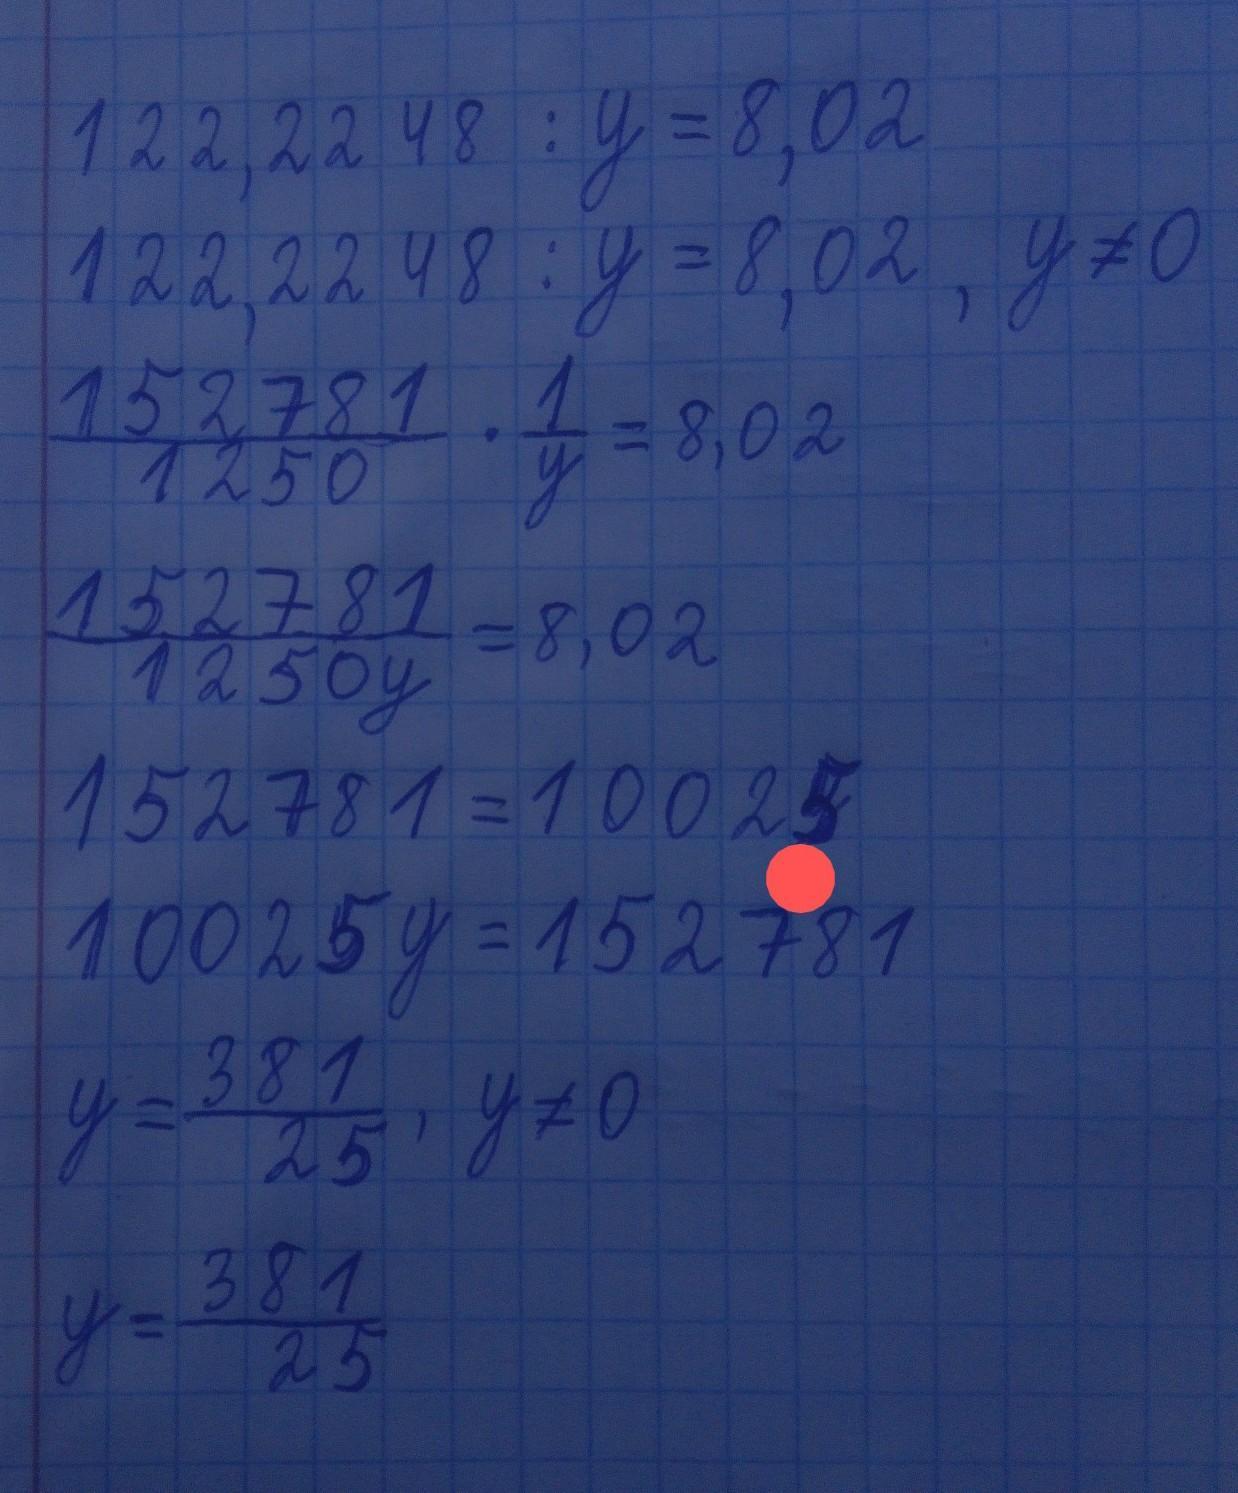 122,2248 : y = 8,02
122,2248 : y = 8,02 , y ≠ 0
152781/1250 · 1/y = 8,02
152781/1250y = 8,02
152781 = 10025
10025y = 152781
y = 381/25 , y ≠ 0
y = 381/25